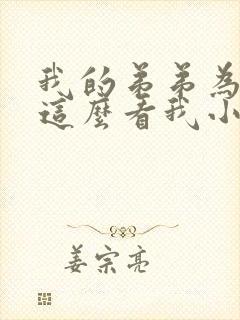 我的弟弟為
這麼看我小
姜宗亮